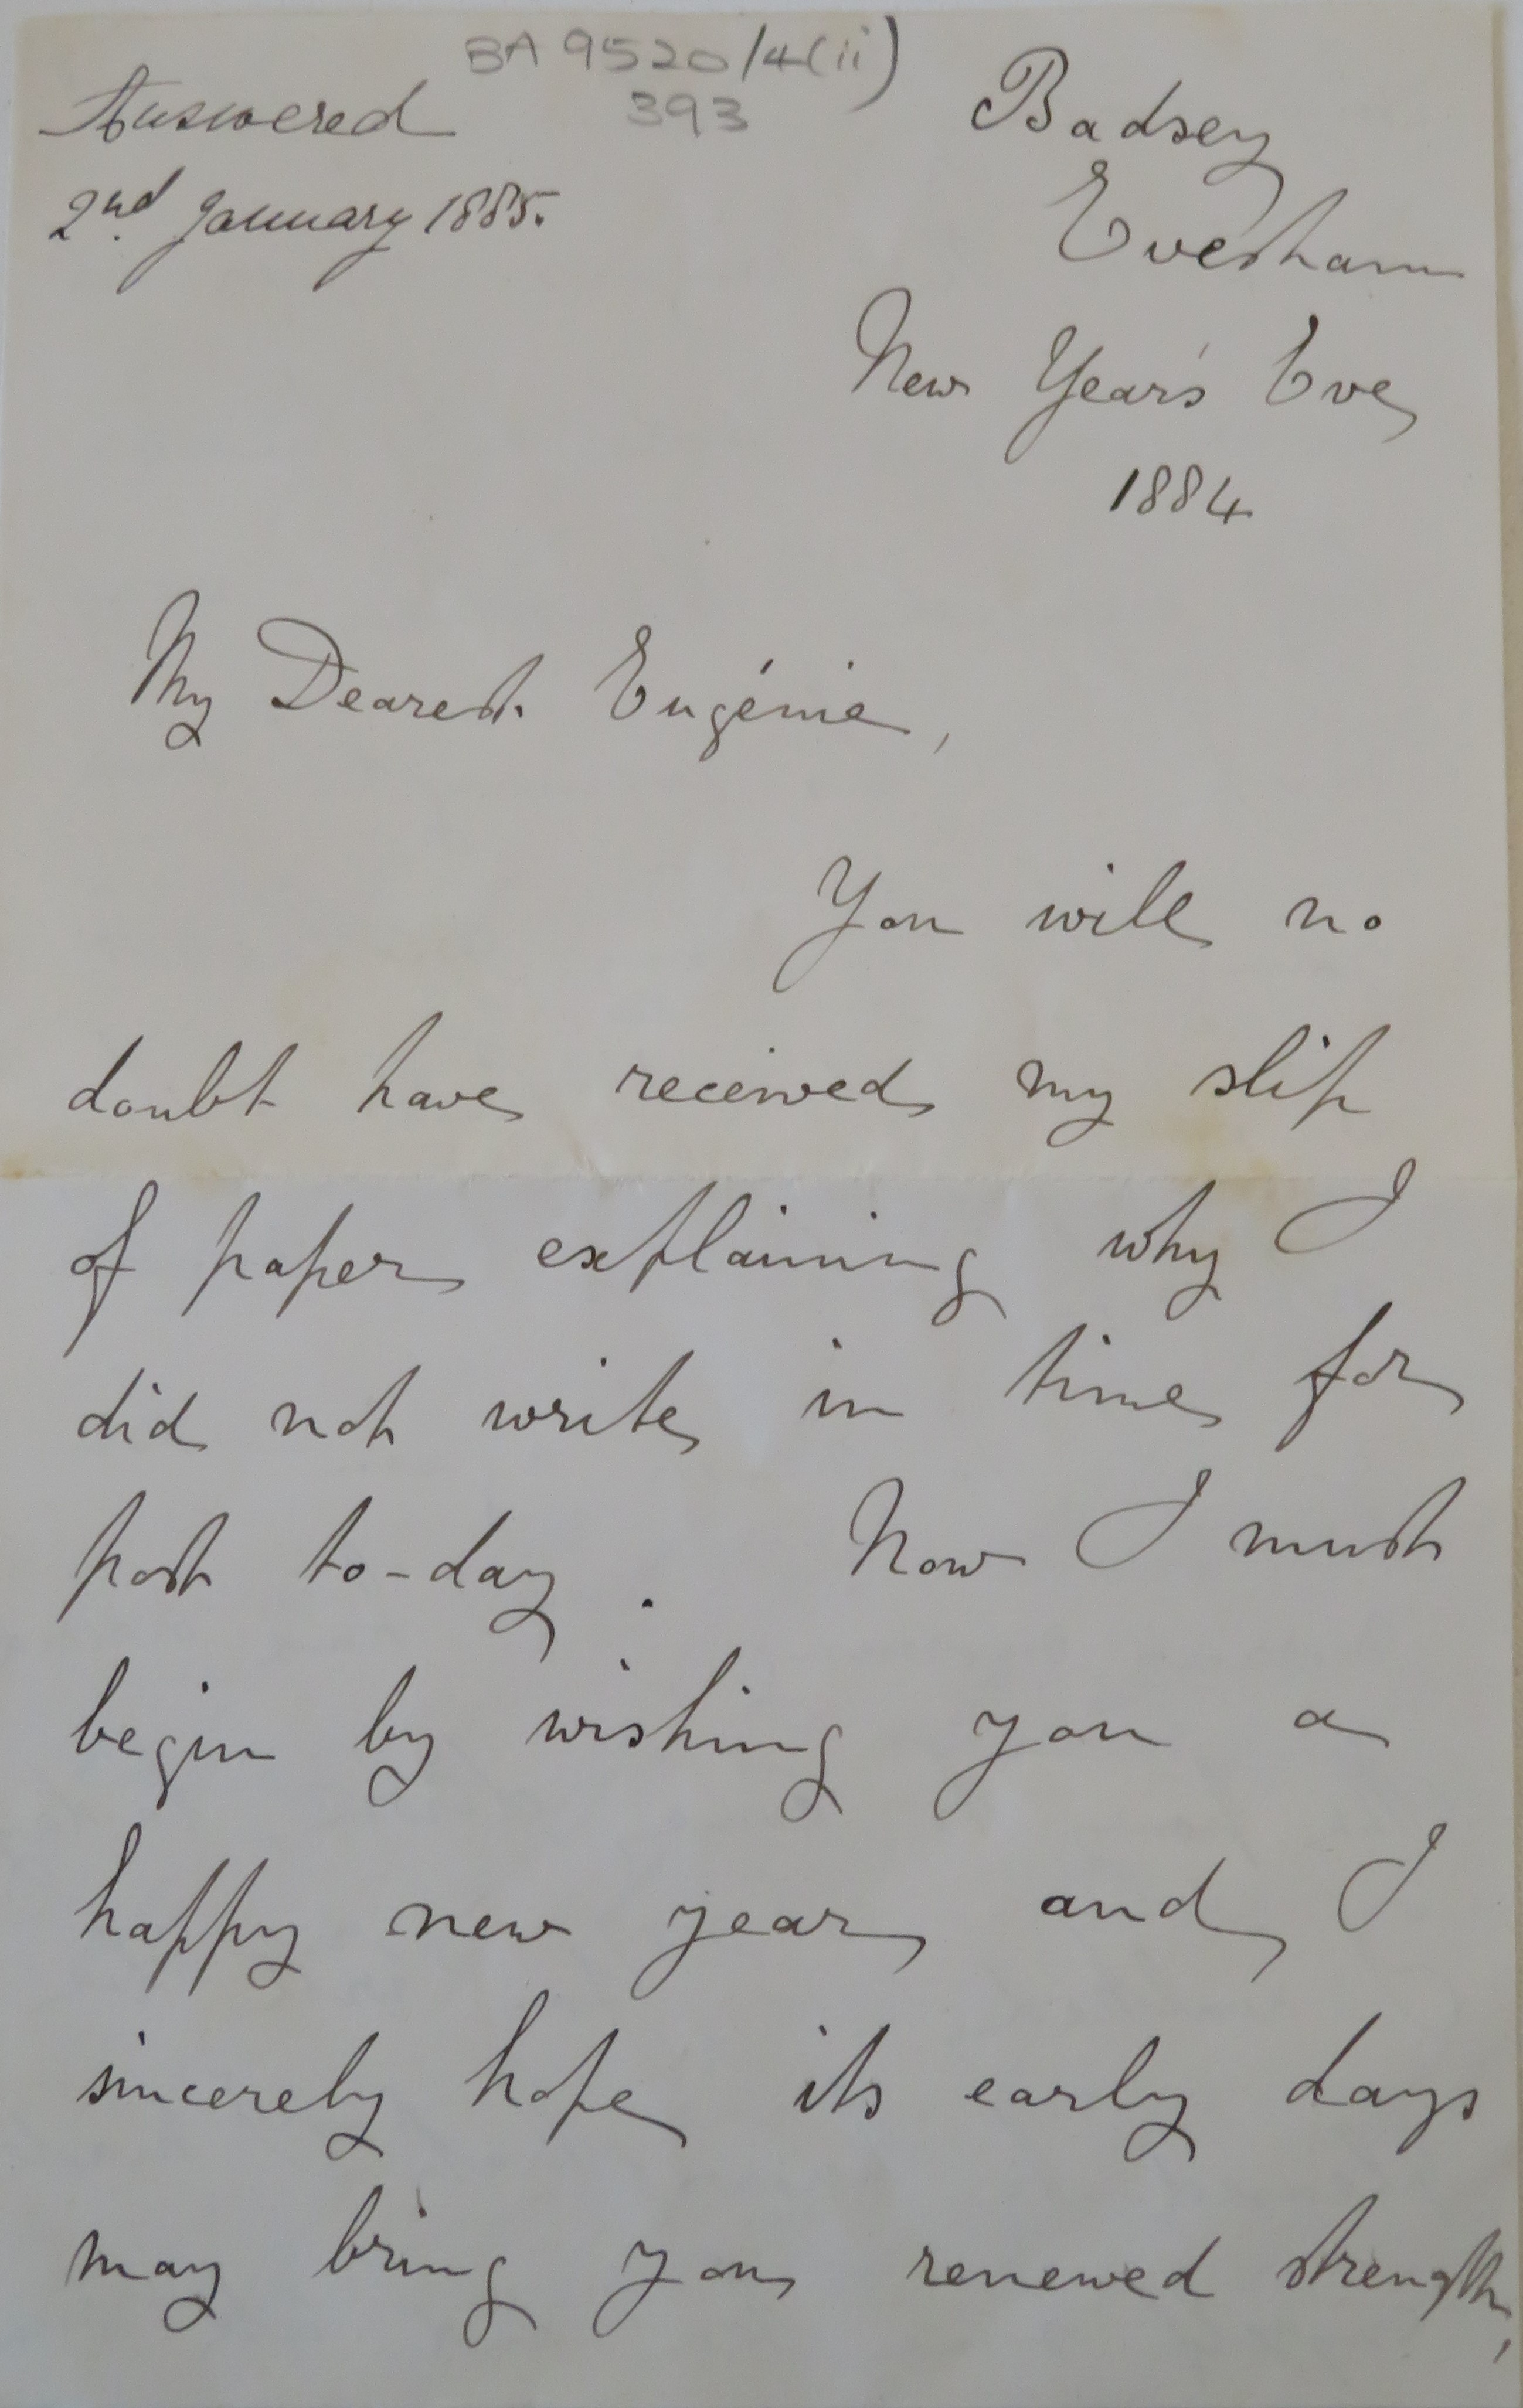 BA 9520/4(ii)
393
Answered
2nd January 1885.
Badsey
Evesham
New Year's Eve
1884
My Dearest Eugénie,
You will no
doubt have received my slip
of paper explaining why I
did not write in time for
post to-day. Now I must
begin by wishing you a
happy new year and I
sincerely hope its early days
may bring you renewed strength,